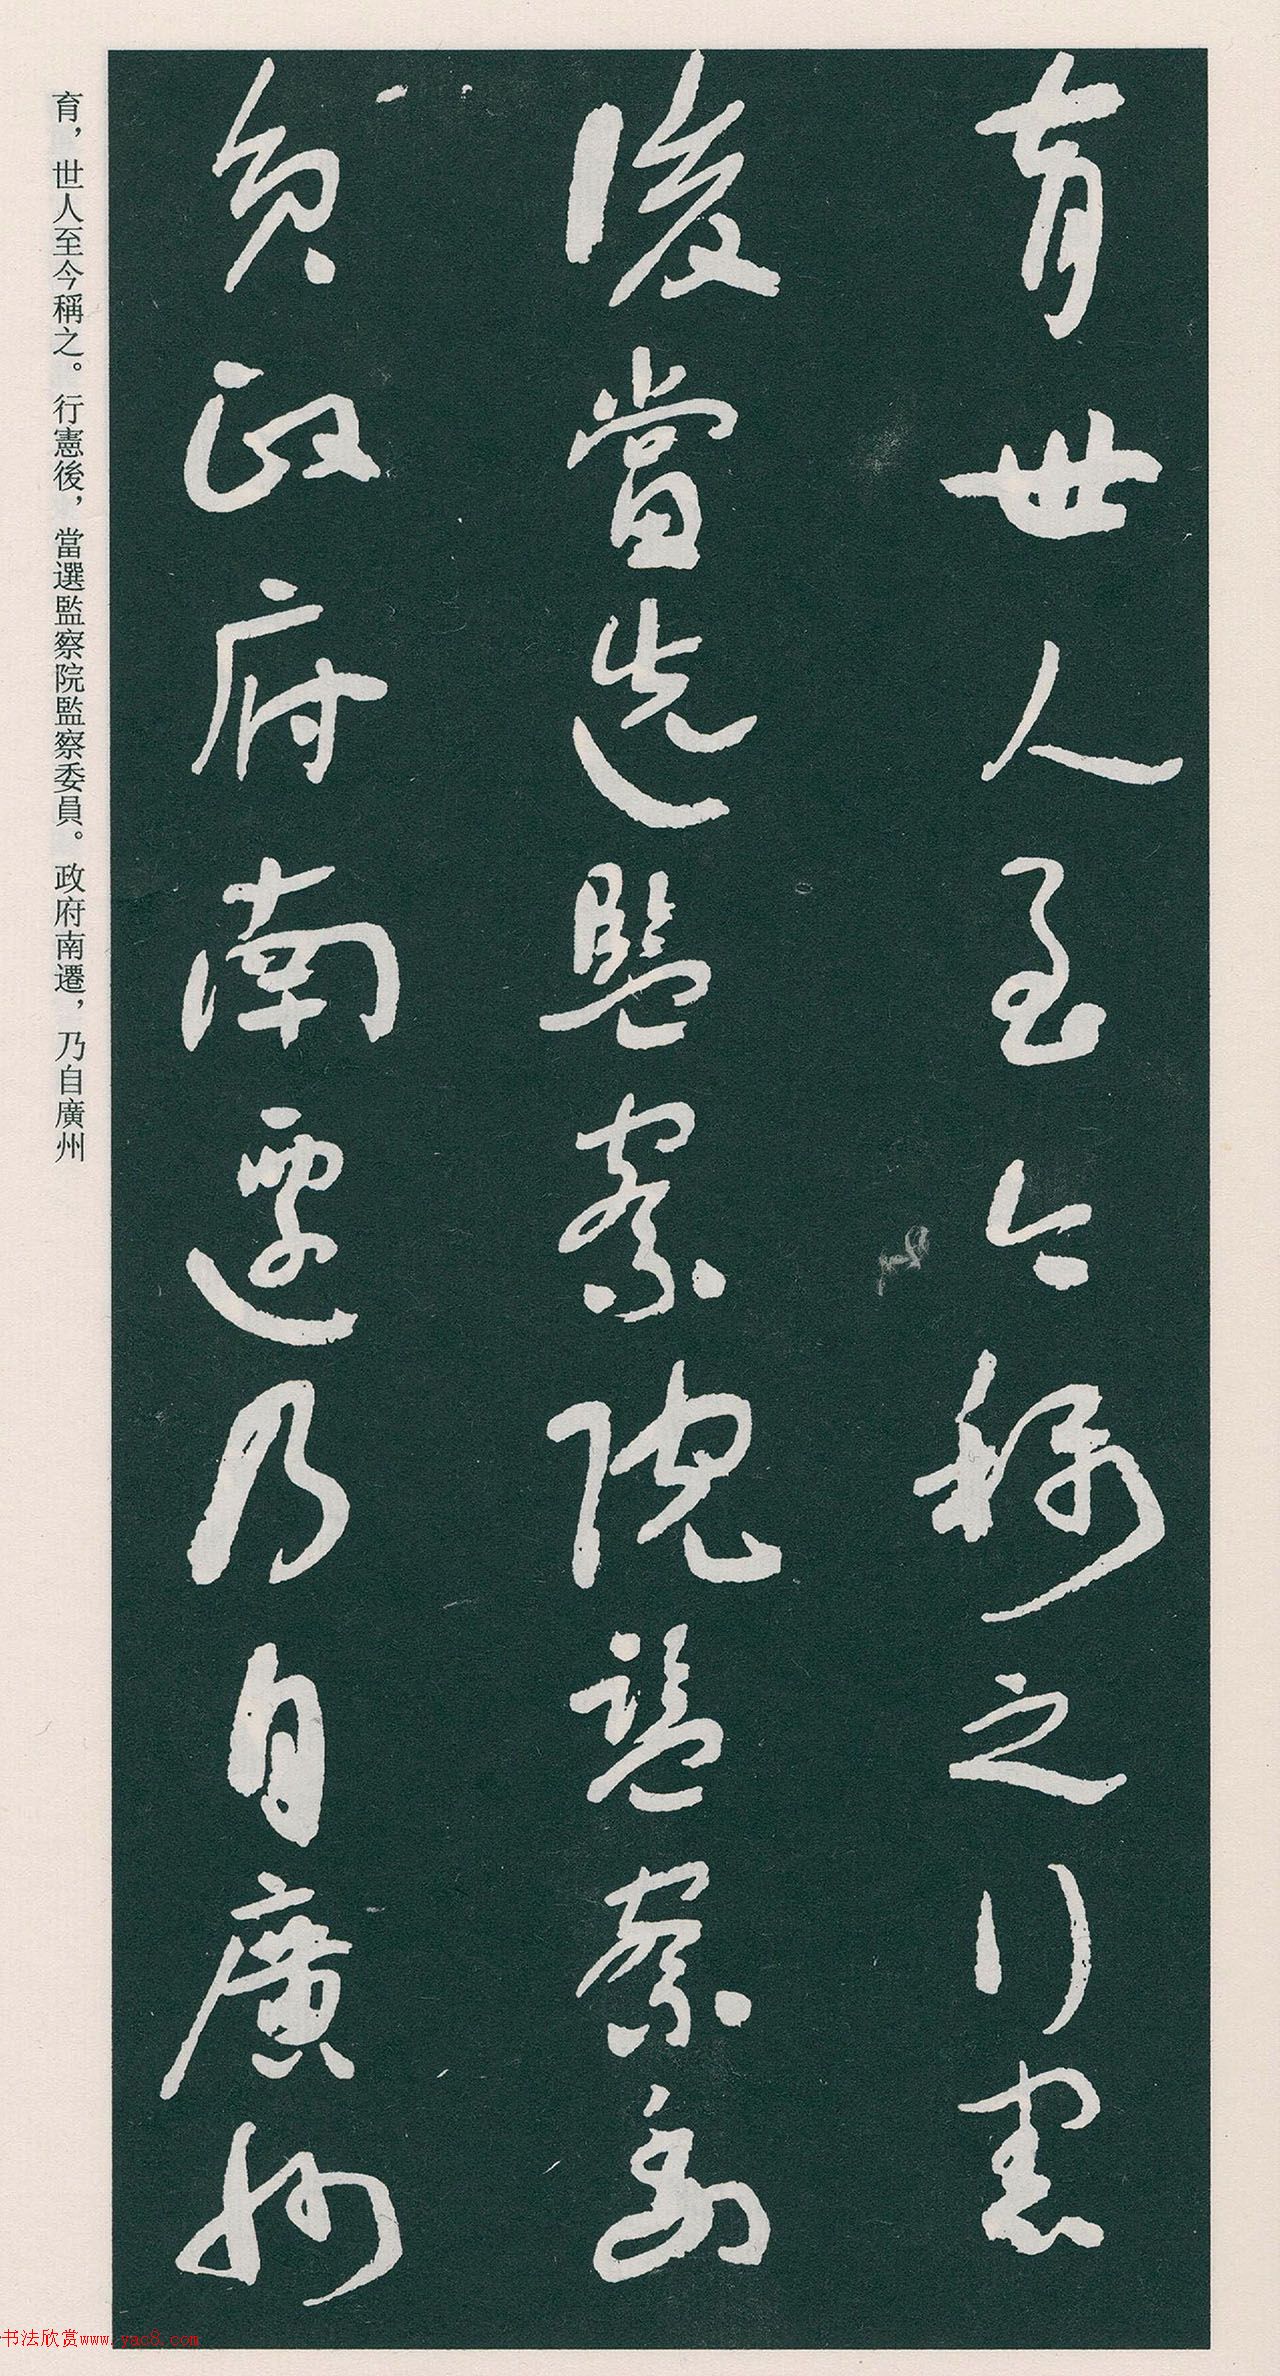 育世人至今稱之行憲
後當選監察院監察委
員政府南遷乃自廣州
育，世人至今稱之。行憲後，當選監察院監察委員。政府南遷，乃自廣州
书法欣赏www.yac8.com